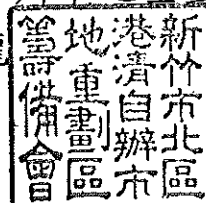 新竹市北區
港清自辦市
地重劃區
籌備會